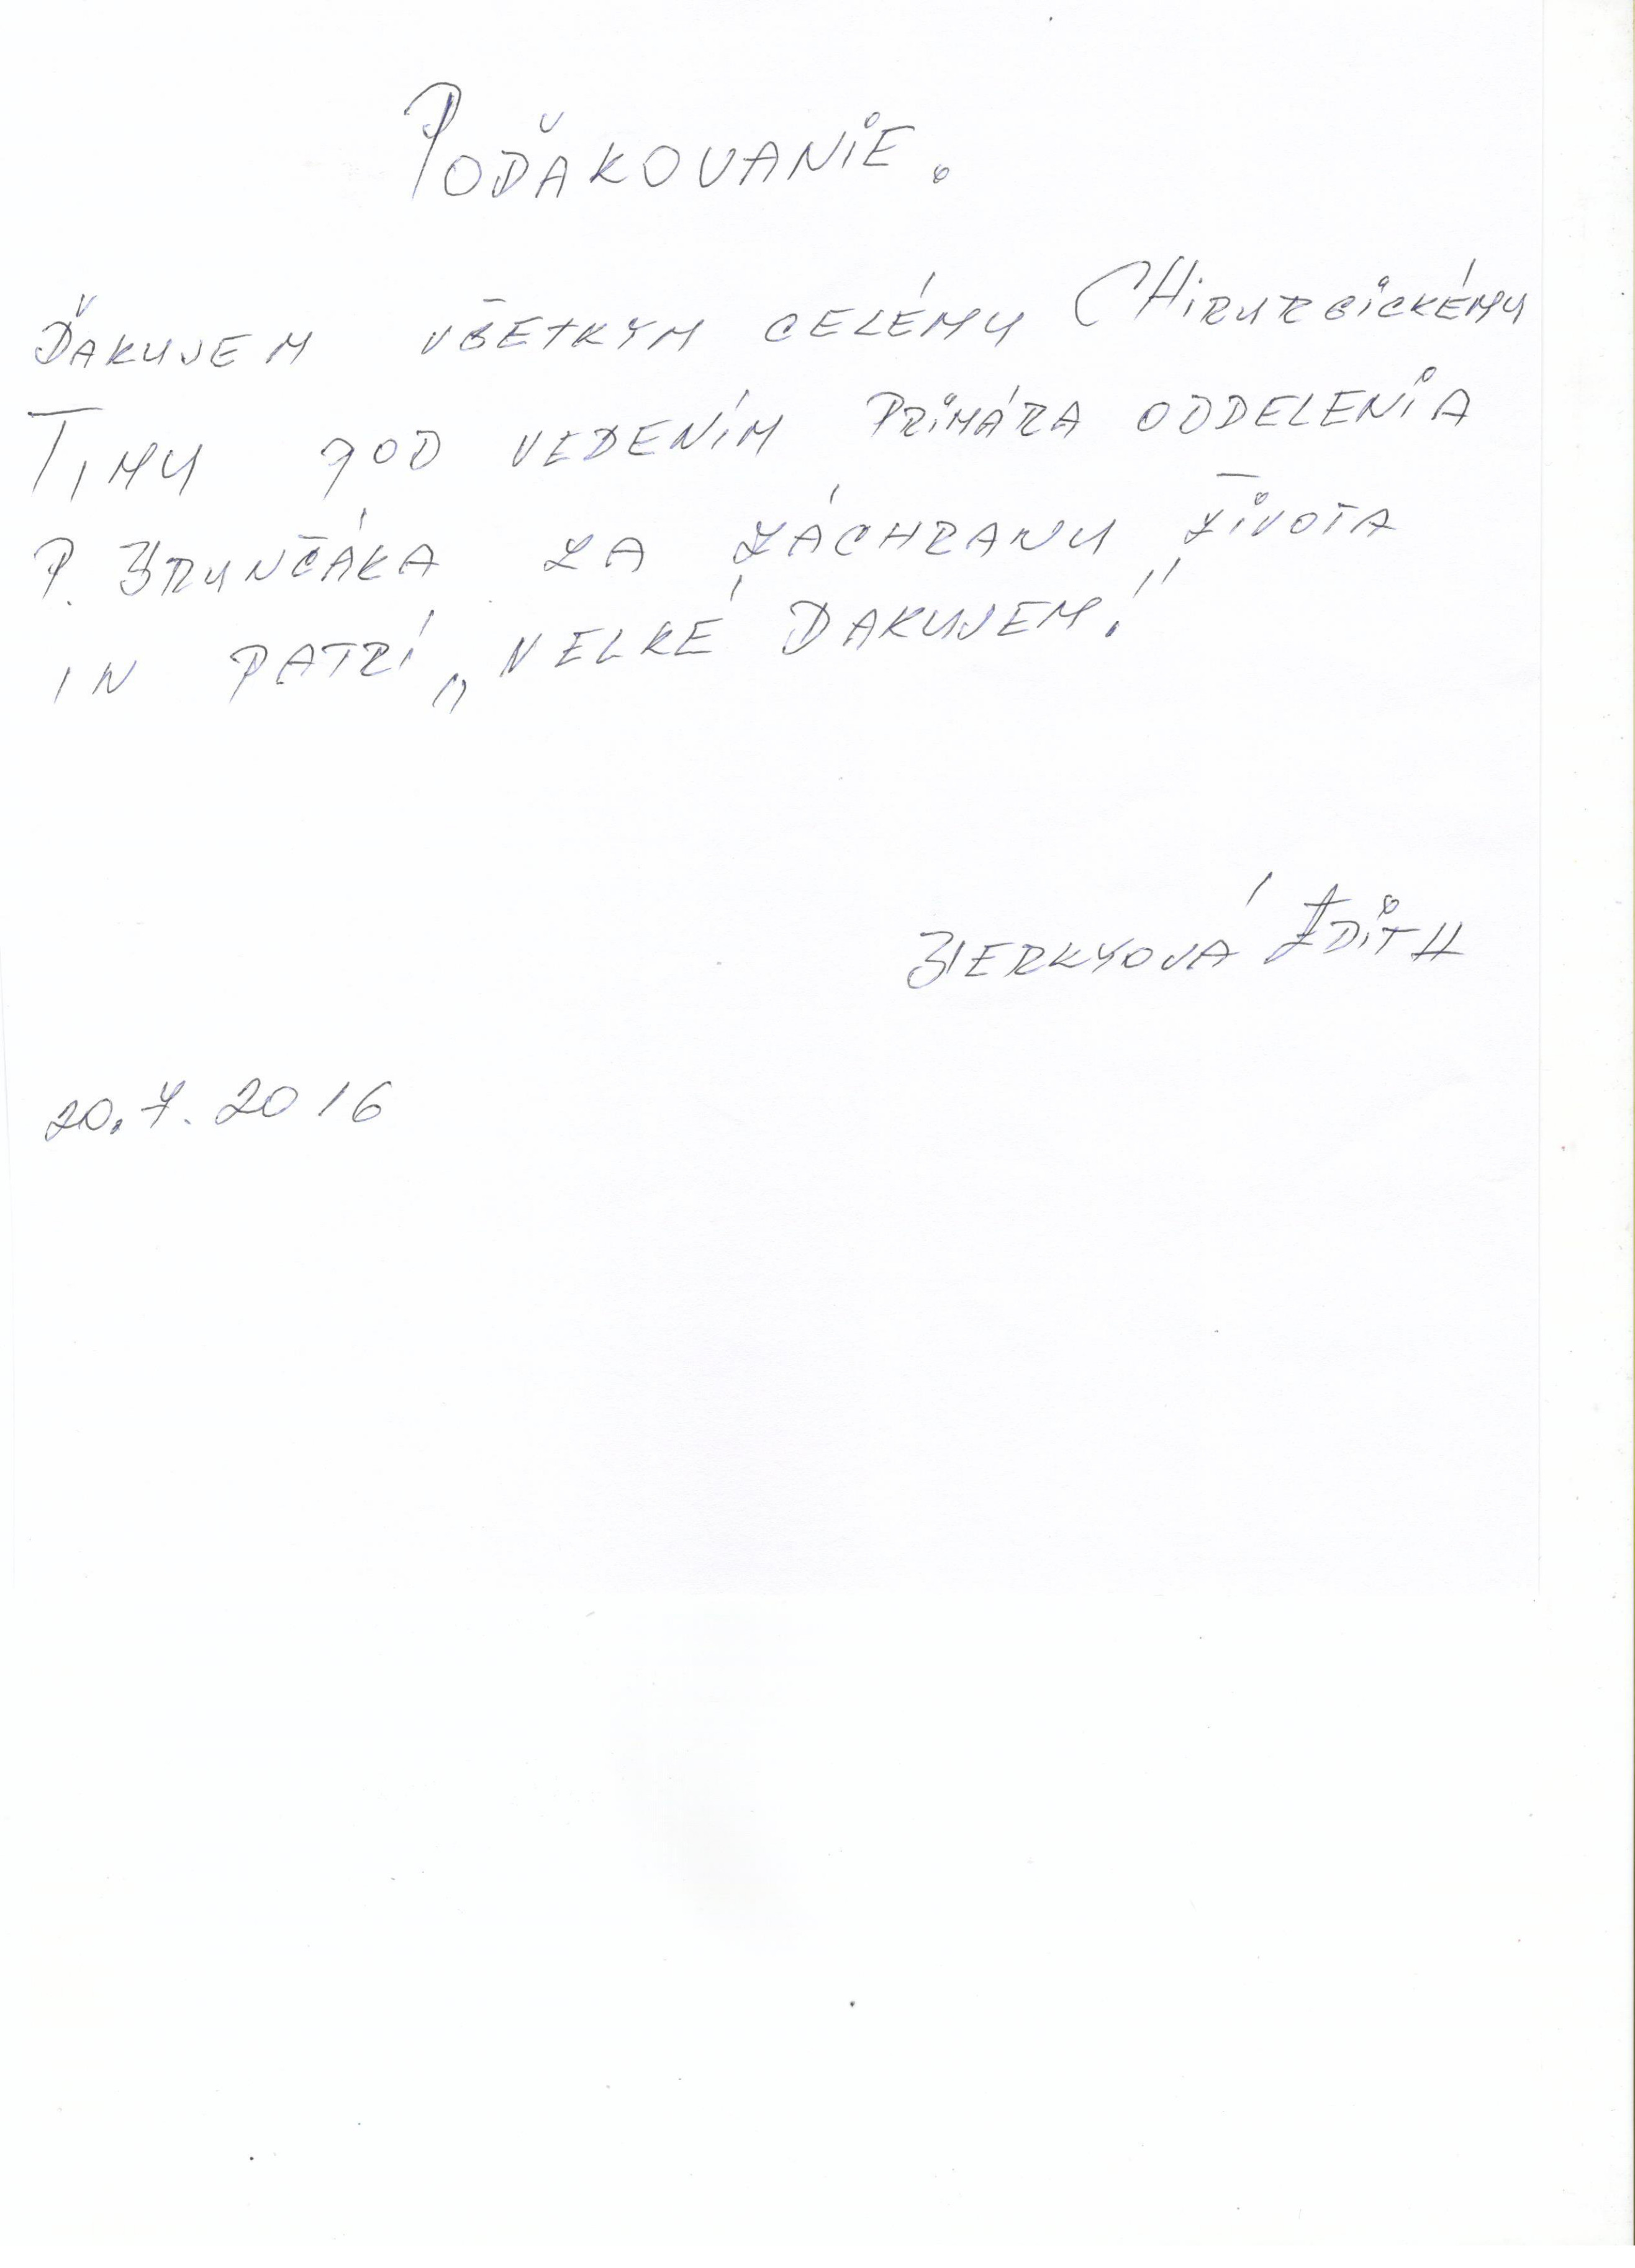 POĎAKOVANIE.
ĎAKUJEM VŠETKYM CELÉMU CHIRURGICKÉMU
TIMU POD VEDENÍM PRIMÁRA ODDELENIA
P. BRUNČÁKA ZA ZÁCHRANU ŽIVOTA
IM PATRÍ „VELKÉ ĎAKUJEM!"
BERKYOVÁ EDITH
20.7.2016